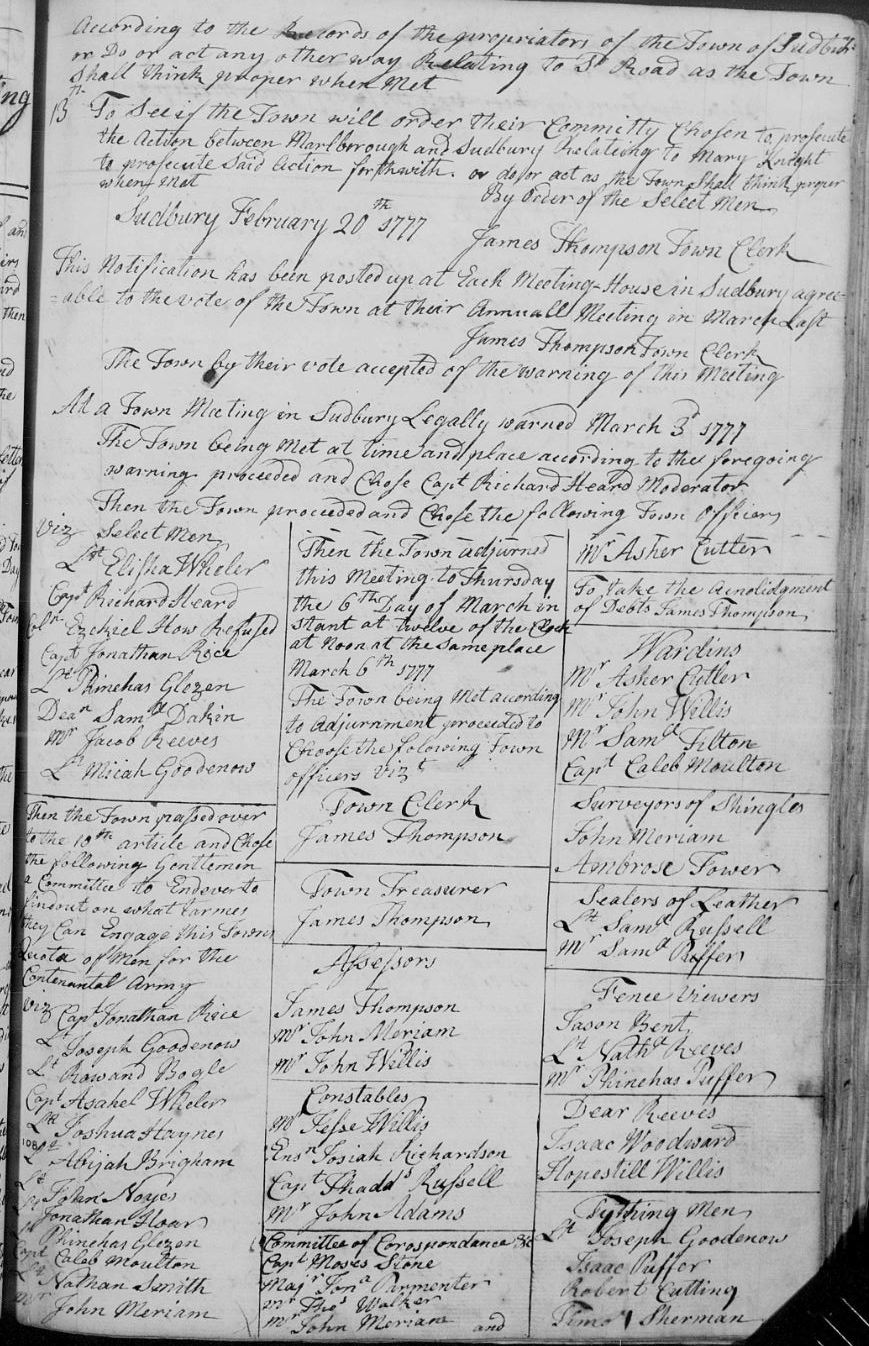 According to the Records of the propriators of the Town of Sudbury
or Do or act any other way Relating to Sd Road as the Town
Shall think proper when Met
13th To See if the Town will order their Committy Chosen to prosecute
the Action between Marlborough and Sudbury Relateing to Mary Knight
to prosecute Said Action forthwith. or do or act as the Town Shall think proper
when Met
By Order of the Select Men
Sudbury February 20th 1777
James Thompson Town Clerk
This Notification has been posted up at Each Meeting-House in Sudbury agree-
=able to the vote of the Town at their Annuall Meeting in March Last
James Thompson Town Clerk
The Town by their vote accepted of the warning of this Meeting
At a Town Meeting in Sudbury Legally warned March 3d 1777
The Town being Met at time and place according to the foregoing
warning proceeded and Chose Capt Richard Heard Moderator
Then the Town proceeded and Chose the following Town Officers
Viz Select Men
Lt Elisha Wheler
Capt Richard Heard
Coln Ezekiel How Refused
Capt Jonathan Rice
Lt Phinehas Glezen
Dean Samll Dakin
Mr Jacob Reeves
Lt Micah Goodenow
Then the Town passed over
to the 10th article and Chose
the following Gentlemen
a Committee to Endever to
fineout on what tarmes
they Can Engage this Towns
Quota of Men for the
Contenental Army
Viz Capt Jonathan Rice
Lt Joseph Goodenow
Lt Rowand Bogle
Capt Asahel Wheler
Lt Joshua Haynes
108
Lt Abijah Brigham
Lt John Noyes
Jonathan Hoar
Lt Phinehas Glezen
Capt Caleb Moulton
Lt Nathan Smith
Mr John Meriam
Then the Town adjurned
this Meeting to Thursday
the 6th Day of March in
stant at twelve of the Clock
at Noon at the same place
March 6th 1777
The Town being Met according
to Adjurnment proceeded to
Choose the folowing Town
officers Vizt
Town Clerk
James Thompson
Town Treasurer
James Thompson
Assessors
James Thompson
Mr John Meriam
Mr John Willis
Constables
Mr Jesse Willis
Ensn Josiah Richardson
Capt Thadds Russell
Mr John Adams
Committee of Corospondance &c
Capt Moses Stone
Majr Jona Parmenter
Mr Thos Walker
Mr John Meriam and
Mr Asher Cutler
To take the Acnolidgment
of Debts James Thompson
Wardins
Mr Asher Cutler
Mr John Willis
Mr Samll Tilton
Capt Caleb Moulton
Surveyors of Shingles
John Meriam
Ambrose Tower
Sealers of Leather
Lt Samll Russell
Mr Samll Puffer
Fence Viewers
Jason Bent
Lt Nathll Reeves
Mr Phinehas Puffer
Dear Reeves
Isaac Woodward
Hopestill Willis
Tything Men
Lt Joseph Goodenow
Isaac Puffer
Robert Cutting
Timoy Sherman